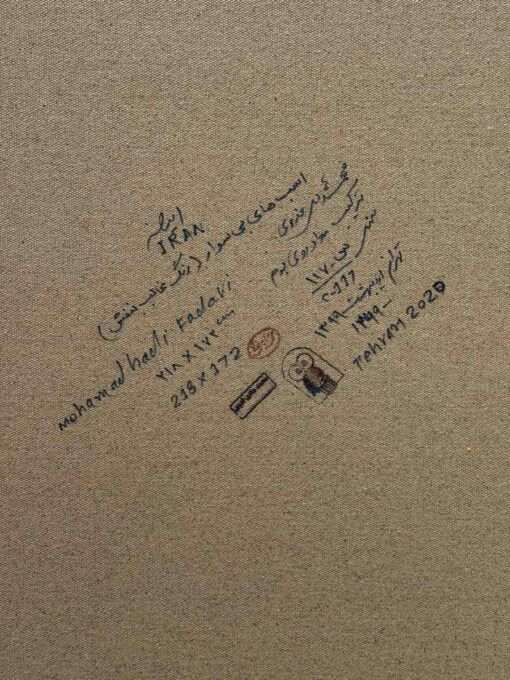 ایران
IRAN
اسب های بی سوار (رنگ غالب بنفش)
محمدهادی فدوی
ترکیب مواد روی بوم
Mohamad hadi Fadavi
۲۱۸ × ۱۷۲
218 × 172
اردیبهشت ۱۳۹۹
۱۳۹۹
Tehran 2020